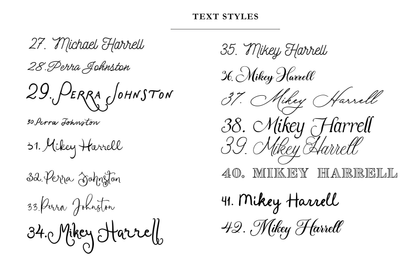 TEXT STYLES
27. Michael Harrell
28. Perra Johnston
29. PERRA JOHNSTON
30. Perra Johnston
31. Mikey Harrell
32. Perra Johnston
33. Perra Johnston
34. Mikey Harrell
35. Mikey Harrell
36. Mikey Harrell
37. Mikey Harrell
38. Mikey Harrell
39. Mikey Harrell
40. MIKEY HARRELL
41. Mikey Harrell
42. Mikey Harrell